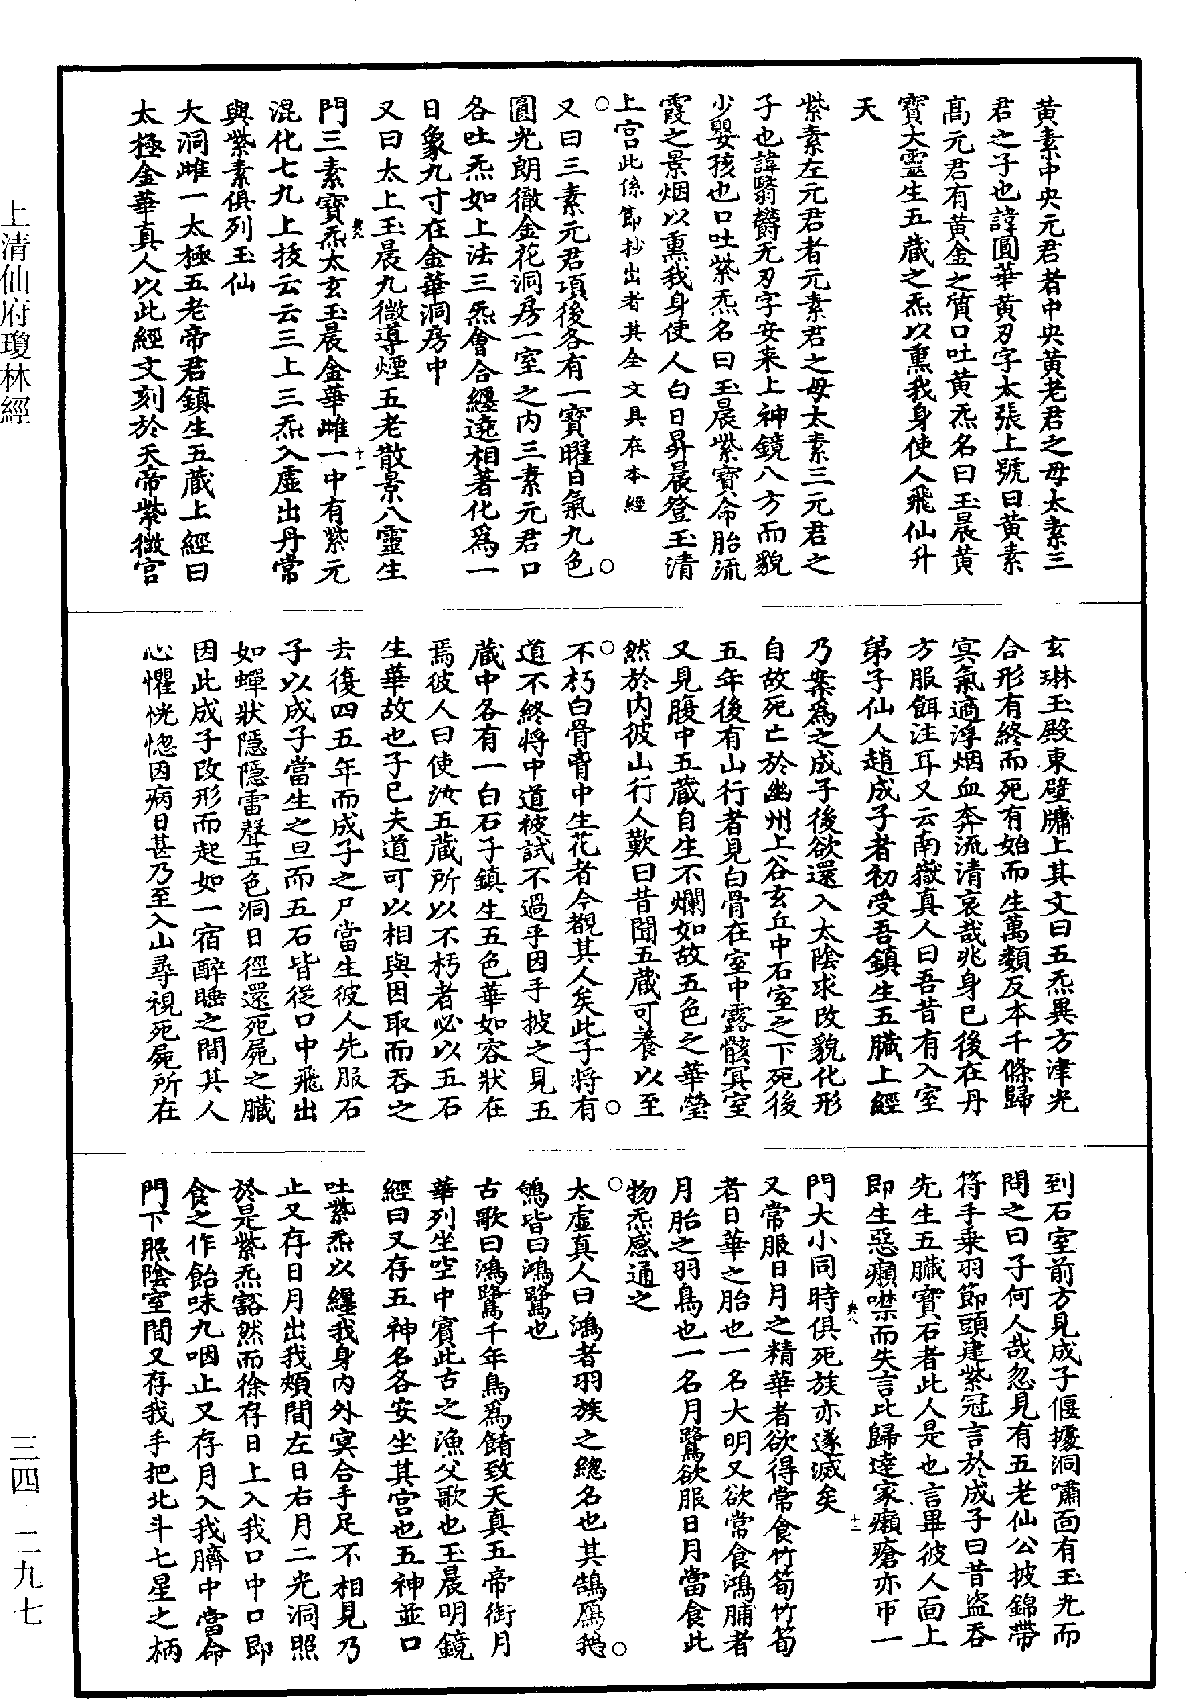 黃素中央元君者中央黃老君之母太素三
君之子也諱圓華黃刃字太張上號曰黃素
高元君有黃金之質口吐黃炁名曰玉晨黃
寶大靈生五藏之炁以熏我身使人飛仙升
天
紫素左元君者元素君之母太素三元君之
子也諱翳鬱无刃字安来上神鏡八方而貌
少嬰孩也口吐紫炁名曰玉晨紫寶命胎流
霞之景烟以熏我身使人白日昇晨登玉清
上宫此係節抄出者其全文具在本經
又曰三素元君項後各有一寶曜日氣九色
圓光朗徹金花洞房一室之内三素元君口
各吐炁如上法三炁會合纒遶相著化為一
日象九寸在金華洞房中
又曰太上玉晨九微導煙五老散景八靈生
門三素寶炁太玄玉晨金華雌一中有紫元
混化七九上抜云云三上三炁入虚出丹常
與紫素俱列玉仙
大洞雌一太極五老帝君鎮生五藏上經曰
太極金華真人以此經文刻於天帝紫微宫
玄琳玉殿東壁牖上其文曰五炁異方津光
合形有終而死有始而生萬類反本千條歸
冥氣適浮烟血奔流清哀哉兆身已後在丹
方服餌注耳又云南嶽真人曰吾昔有入室
弟子仙人趙成子者初受吾鎮生五臟上經
乃案為之成子後欲還入太陰求改貌化形
自故死亡於幽州上谷玄丘中石室之下死後
五年後有山行者見白骨在室中露骸冥室
又見腹中五蔵自生不爛如故五色之華瑩
然於内彼山行人歎曰昔聞五蔵可養以至
不朽白骨脊中生花者今覩其人矣此子将有
道不終將中道被試不過乎因手披之見五
蔵中各有一白石子鎮生五色華如容狀在
焉彼人曰使汝五蔵所以不朽者必以五石
生華故也子已夫道可以相與因取而吞之
去復四五年而成子之尸當生彼人先服石
子以成子當生之旦而五石皆從口中飛出
如蟬狀隱隱雷聲五色洞日徑還死屍之臟
因此成子改形而起如一宿醉睡之間其人
心懼恍惚因病日甚乃至入山尋視死屍所在
到石室前方見成子偃據洞嘯面有玉光而
問之曰子何人哉忽見有五老仙公披錦帶
符手乗羽節頭建紫冠言於成子曰昔盗吞
先生五臟寶石者此人是也言畢彼人面上
即生惡癩噤而失言比歸達家癩瘡亦帀一
門大小同時俱死族亦遂滅矣
又常服日月之精華者欲得常食竹筍竹筍
者日華之胎也一名大明又欲常食鴻脯者
月胎之羽鳥也一名月鷺欲服日月當食此
物炁感通之
太虚真人曰鴻者羽族之總名也其鵠鴈鵝
鴇皆曰鴻鷺也
古歌曰鴻鷺千年鳥為餚致天真五帝銜月
華列坐空中賓此古之漁父歌也玉晨明鏡
經曰又存五神名各安坐其宫也五神並口
吐紫炁以纒我身内外冥合手足不相見乃
止又存日月出我頰間左日右月二光洞照
於是紫炁豁然而徐存日上入我口中口即
食之作飴味九咽止又存月入我臍中當命
門下照陰室間又存我手把北斗七星之柄
上清仙府瓊林經
三四·二九七